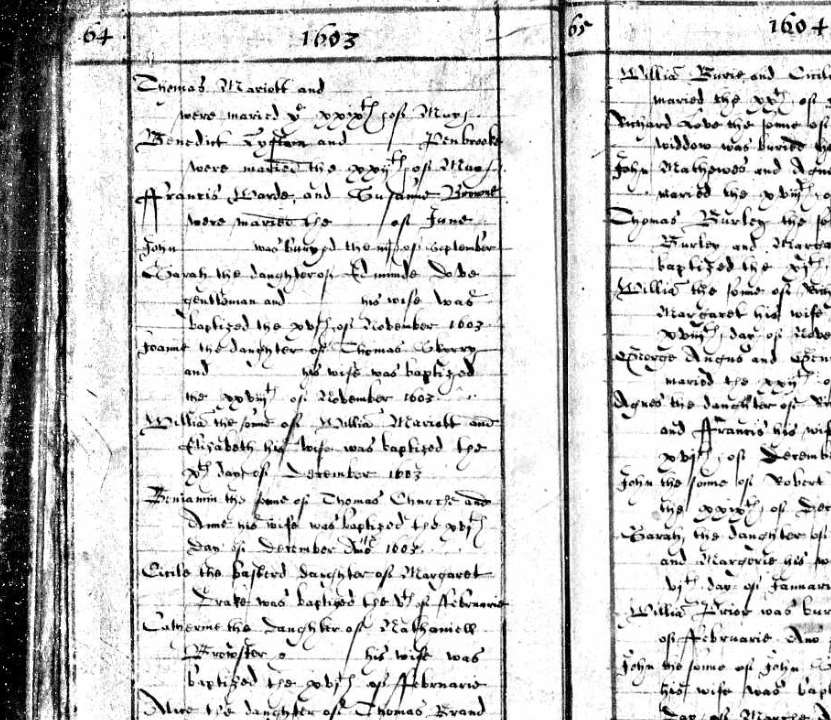 64
1603
Thomas Mariott and
were maried ye xxixth of May
Benedict and Penbrooke
were maried the xxijth of May
ffrancis Warde and Susanne Browne
were maried the of June
John was buryed the iijth of September
Sarah the daughter of Edmunde Dove
gentleman and his wife was
baptized the xvth of November 1603
Joanne the daughter of Thomas Sherry
and his wife was baptized
the xxviijth of November 1603
Willia the sonne of Willia Mariott and
Elizabeth his wife was baptized the
xth day of December 1603
Beniamin the sonne of Thomas Churche and
Anne his wife was baptized the xvjth
day of December 1603
Cicile the basterd daughter of Margaret
Drake was baptized the vth of ffebruarie
Catherine the daughter of Nathaniell
Brewster his wife was
baptized the xvjth of ffebruarie
Alice the daughter of Thomas Brand
65
1604
Willia Burie and
maried the xxth of
Richard Love the sonne of
widdow was buried the
John Mathewes and Agnes
maried the xviijth
Thomas Burley the
Burley and Margaret
baptized the
Willia the sonne of
Margaret his wife
xviijth day of Nove
George Angus and
maried the xxijth
Agnes the daughter of
and ffrancis his wife
xvjth of December
John the sonne of Robert
the xxxth of Dec
Sarah the daughter of
and Margerie his
vjth day of Januarie
Willia Prior was bur
of ffebruarie Ano
John the sonne of John
his wife was bapt
Day of Marche